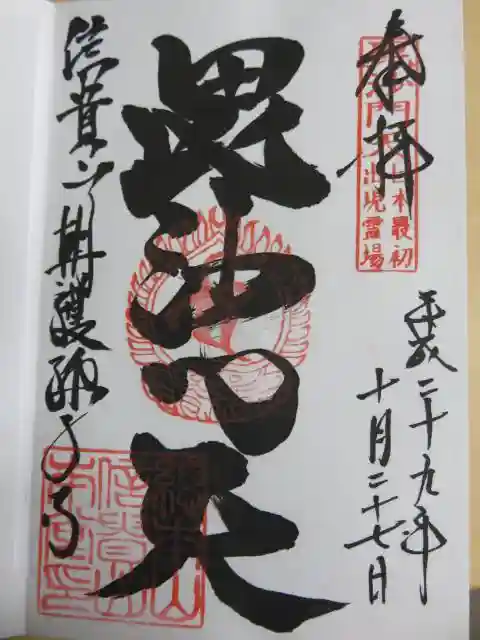 奉拝
日本最初
出現霊場
平成二十九年
十月二十七日
毘沙門天
信貴山朝護孫子寺